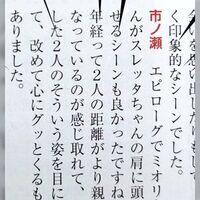 いを思い出したりもして
く印象的なシーンでした。
市ノ瀬 エピローグでミオリ
んがスレッタちゃんの肩に頭
せるシーンも良かったですね
年経って２人の距離がより親
なっているのが感じ取れて、
した２人のそういう姿を目に
て、改めて心にグッとくるも
ありました。